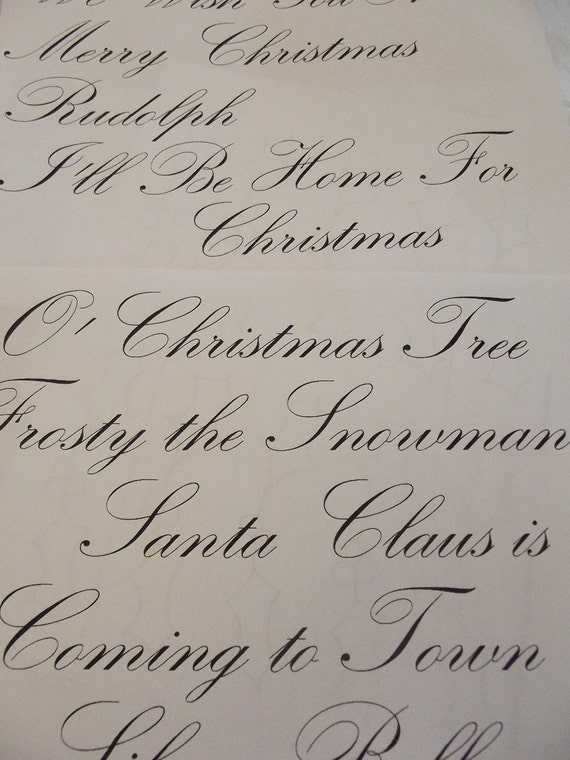 We Wish You A
Merry Christmas
Rudolph
I'll Be Home For
Christmas
O' Christmas Tree
Frosty the Snowman
Santa Claus is
Coming to Town